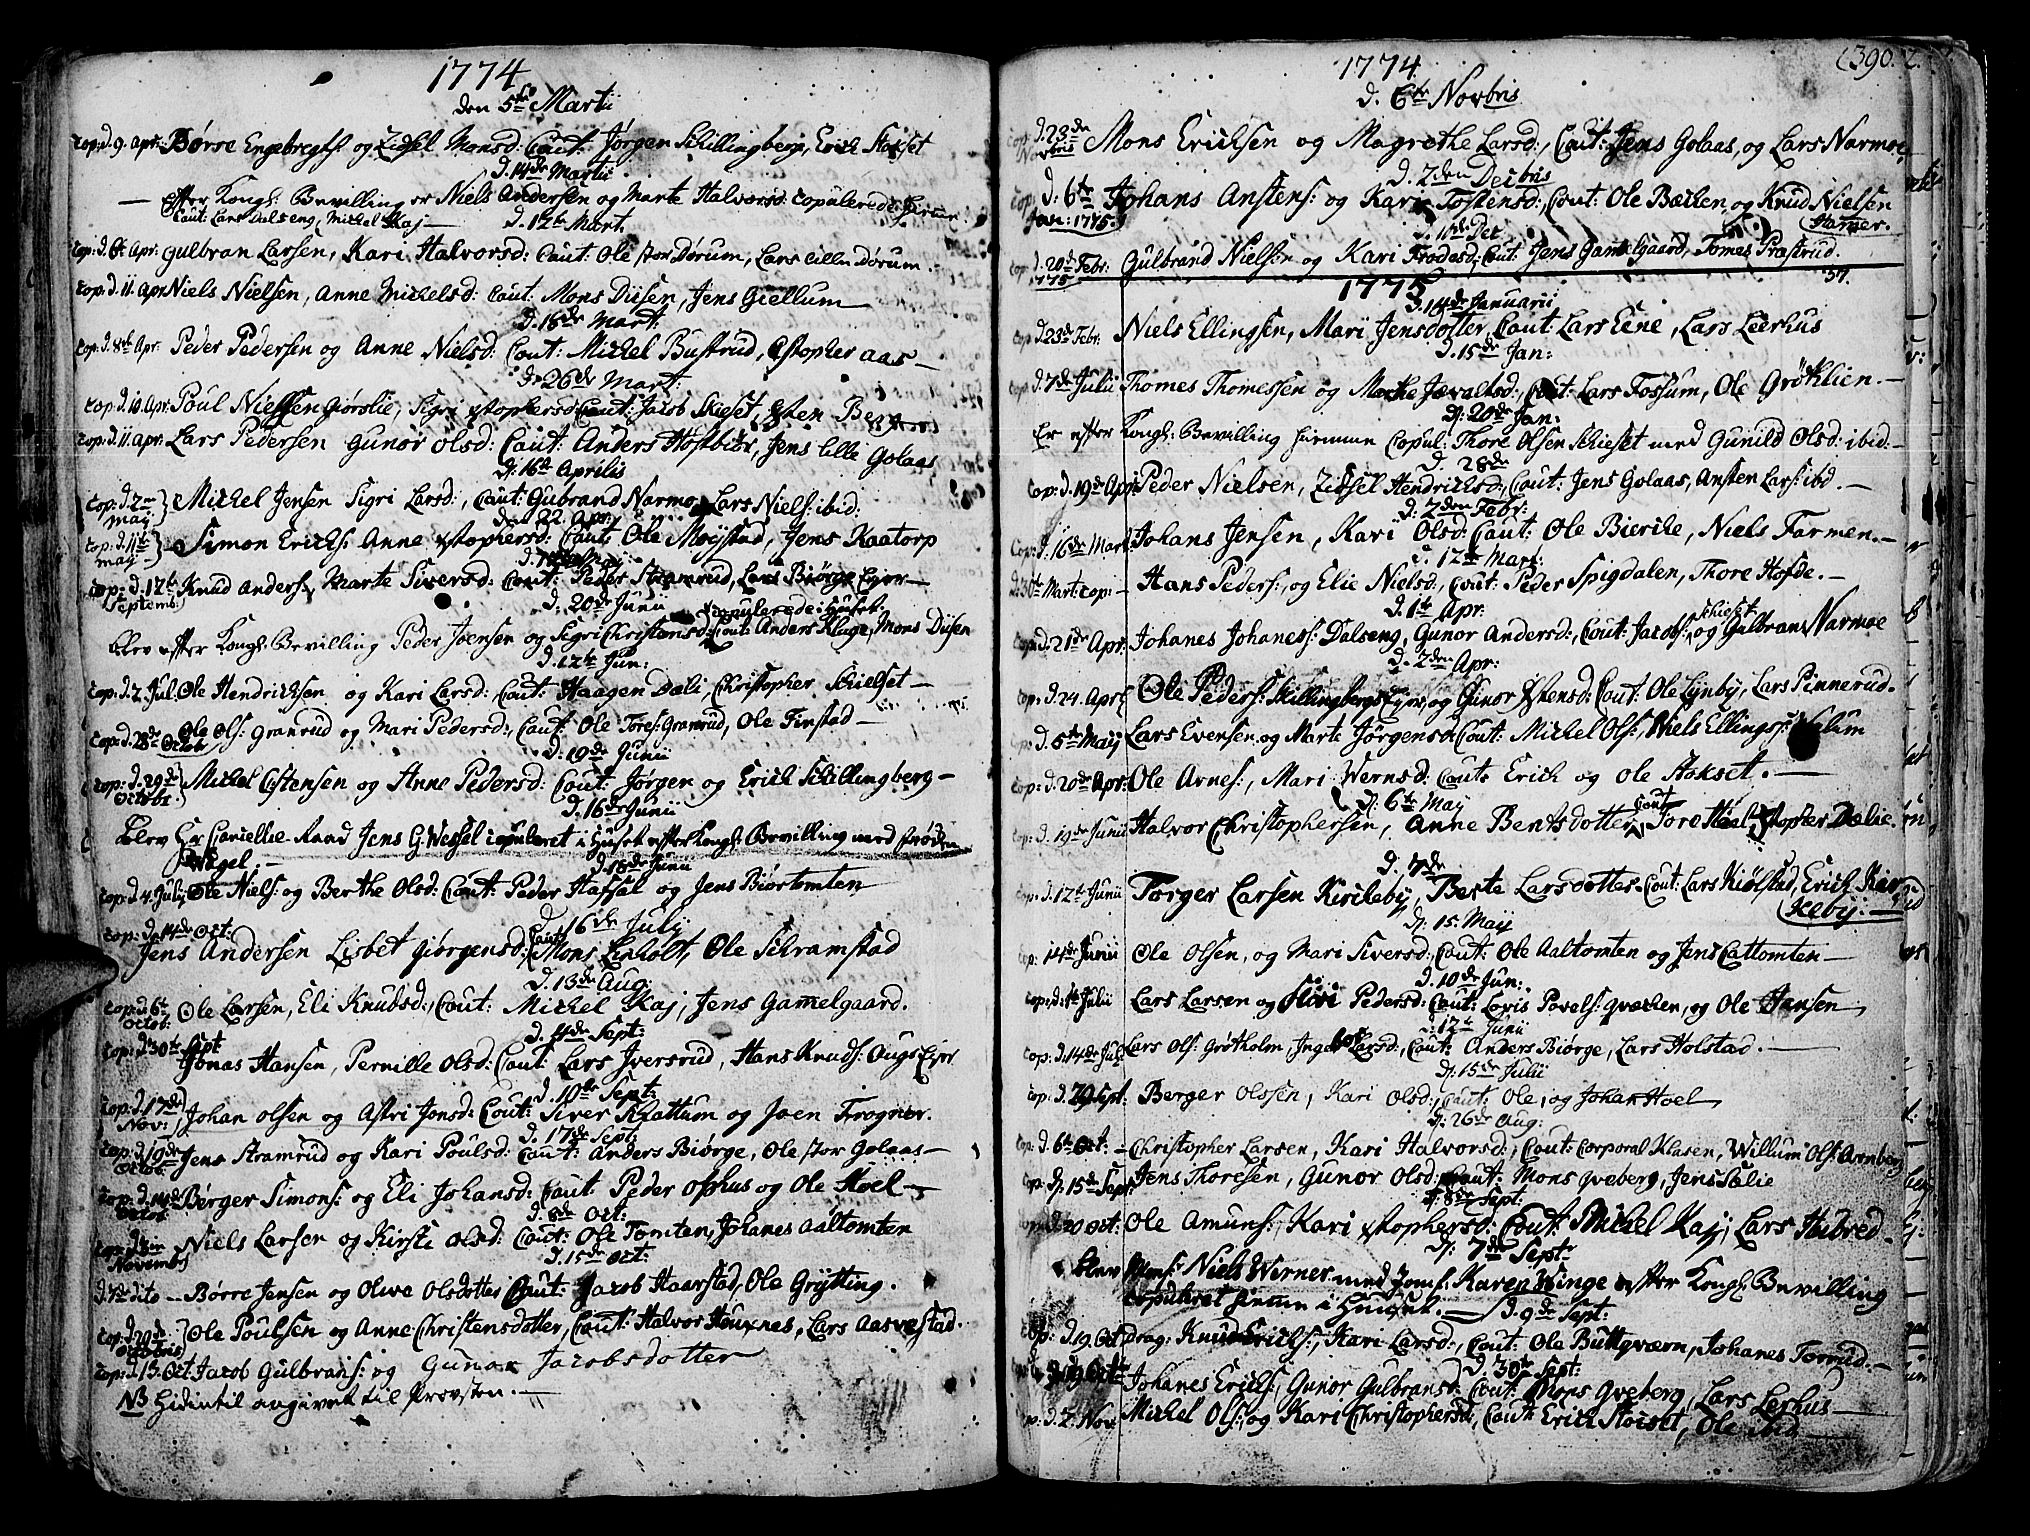 1774
den 5te Martii
cop: d. 9. Apr: Børre Engebregts og Zidsel Monsd: Caut: Jørgen Schillingberg, Erich Stokset
d. 14de Martii
— efter Kongl: Bevilling er Niels Andersen og Marte Halvorsd: copulerede hiemme
Caut: Lars Dalseng, Michel Kaj —
d. 12te Mart.
cop: d. 6t Apr: Gulbran Larsen, Kari Halvorsd: Caut: Ole stor Dørum, Lars lille Dørum.
cop: d. 11 Apr Niels Nielsen, Anne Michelsd: Caut: Mons Diisen, Jens Giellum —
d. 18de Mart.
cop: d. 8de Apr: Peder Pedersen og Anne Nielsd: Caut: Michel Bustrud, Cstopher Aas —
d: 26de Mart:
cop: d. 10. Apr: Poul Nielsen Giørslie, Sigri Xstophersd Caut: Jacob Skieset, Esten Berger
cop: d. 11. apr: Lars Pedersen Gunor Olsd: Caut: Anders Hostbiør, Jens lille Golaas
d: 16de Aprilis
cop: d. 2den May Michel Jensen Sigri Larsd: Caut: Gulbrand Narmo, Lars Niels: ibid:
den 22. Apr:
cop: d. 11te may — Simon Erichs: Anne Xstophersd: Caut: Ole Moystad, Jens Kaatorp
cop: d. 12te Septemb: Knud Anders: Marte Siversd: Caut: Peder Stramrud, Lars Biørge Eyer —
d: 20de Junii
Blev efter Kongl: Bevilling Peder Joensen og Sigri Christensd: copulerede i Huset. Caut: Anders Kluge, Mons Diisen
d. 12te Jun:
cop: d. 2 Jul: Ole Hendrichsen og Kari Larsd: Caut: Haagen Dæli, Christopher Schieset —
cop: d. 28de Octob: Ole Ols: Granrud og Mari Pedersd:, Caut: Ole Tores: Granrud, Ole Finstad —
d. 19de Junii
cop: d. 29de Octobr: Michel Cstensen og Anne Pedersd: Caut: Jørgen og Erich Schillingberg —
d. 16de Junii
Blev Hr Cancellie-Raad Jens G. Wessel copuleret i Huset efter Kongl: Bevilling med frøken
Nagel. —
d. 18de Junii
cop: d. 4. Julij Ole Niels: og Berthe Olsd: Caut: Peder Hafsal og Jens Biørtomten
d. 16de July
cop: d. 14de Oct: Jens Andersen Lisbet Giørgensd: Caut: Mons Linholt, Ole Schramstad
d. 13de Aug:
cop: d. 6t Octob: Ole Larsen, Eli Knudsd:, Caut: Michel Kaj, Jens Gamelgaard.
d. 4de Sept:
cop: d. 30te Sept Jonas Hansen, Pernille Olsd: Caut: Lars Iversrud, Hans Knuds: Ougs Eyer
d. 10te Sept:
cop: d. 17de Nov: Johan Olsen og Astri Jonsd: Caut: Siver Klattum og Joen Frogner.
d. 17de Sept:
cop: d. 19de Octob: Jens Stramrud og Kari Poulsd: Caut: Anders Biørge, Ole stor Golaas —
cop: d. 14de Octob: Børger Simons: og Eli Johansd: Caut: Peder Ophus og Ole Hoel —
d. 8de Oct:
Novemb: Niels Larsen og Kirsti Olsd: Caut: Ole Tomten, Johanes Aaltomten
d. 15de Oct:
d. 7de dito — Børre Jensen og Olive Olsdotter Caut: Jacob Haarstad, Ole Grytting.
cop: d. 20de Octobris Ole Poulsen og Anne Christensdotter, Caut: Halvor Houxnes, Lars Aasvestad.
cop: d. 13. Oct Jacob Gulbrans: og Gunor Jacobsdotter
NB Hidintil angivet til Provsten. —
(390.
1774
d. 6te Novbris
cop: d. 23de Novbris Mons Erichsen og Magrethe Larsd:, Caut: Jens Golaas, og Lars Narmoe,
d. 2den Decbris
cop: d. 6te Jan: 1775. Johans Anstens: og Kari Tostensd: Caut: Ole Bæcken og Knud Nielsen
Hamer.
d. 10de Dec
cop: d. 20de Febr: 1775 Gulbrand Nielsen og Kari Frodesd: Caut: Jens Gamelgaard, Tomas Præstrud.
37.
1775
d. 14de Januarii
cop: d. 23de Febr: Niels Ellingsen, Mari Jensdotter, Caut: Lars Eene, Lars Leerhus
d. 15de Jan:
cop: d. 7de Julii Thomes Thomessen og Marthe Jævaltsd:, Caut: Lars Fossum, Ole Grøtklien. —
d: 20de Jan:
Er efter Kongl: Bevilling hiemme Copul: Thore Olsen Schieset med Gunild Olsd: ibid: —
d. 28de
cop: d. 19de Apr: Peder Nielsen, Zidsel Hendrichsd:, Caut: Jens Golaas, Ansten Lars: ibd. —
d: 2den Febr:
Cop: d. 16de Mart: Johans Jensen, Kari Olsd: Caut: Ole Bierke, Niels Farmen. —
d. 12te Mart:
d. 30te Mart: cop: — Hans Peders:, og Elie Nielsd:, Caut: Peder Spigdalen, Thore Hofde. —
d. 1te Apr:
cop: d. 21de Apr: Johanes Johaness: Dalseng, Gunor Andersd:, Caut: Jacob: Schieset og Gulbran Narmoe
d. 2den Apr:
cop: d. 24. Apr: Ole Peders: Skillingbergs Eyer, og Gunor Østensd: Caut: Ole Lynby, Lars Pinnerud.
cop: d. 5te Maij Lars Evensen og Marte Jørgensd Caut: Michel Ols:, Niels Ellings: Valum
cop: d. 20de Apr: Ole Arnes:, Mari Wernsd: Caut: Erich og Ole Stokset. —
d: 6te May
cop: d. 19de Junii Halvor Christophersen, Anne Bentsdotter, Caut Tore Hoel, Xstopher Dælie.
d. 7de
cop: d. 12te Junii Torger Larsen Kirckeby, Berte Larsdotter. Caut: Lars Kiølstad, Erich Kir-
kebij: —
d: 15. Maij
cop: 14de Junii Ole Olsen, og Mari Siversd:, Caut: Ole Aaltomten og Jens Cattomten —
d. 10de Jun:
cop: d: 1te Julii Lars Larsen og Siri Pedersd: Caut: Lovis Povels: Qvæchen, og Ole Hansen
d: 12te Junii
cop: d. 14de Jul: Lars Ols: Grøtholm, Ingebor Larsd:, Caut: Anders Biørge, Lars Holstad.
d: 15de Julii
cop: d. 29 Sept: Berger Olssen, Kari Olsd: Caut: Ole, og Johan Hoel
d: 26de Aug:
cop: d. 6te Oct: — Christopher Larsen, Kari Halvorsd: Caut: Corporal Klasen, Willum Ols: Arnberg
cop: d: 15de Sept: Jens Thoresen, Gunor Olsd: Caut: Mons Gveberg, Jens Sælie
d. 8de Sept:
cop: d. 20 Oct: Ole Amuns:, Kari Xstophersd: Caut: Michel Kaj, Lars Hubred.
d: 7de Sept:
blev Mons: Niels Werner med Jomf: Karen Winge efter Kongl: Bevilling
Copuleret hiemme i Huuset. —
d. 9de Sept:
Cop: d. 19. Oct: drag: Knud Erichs:, Kari Larsd:, Caut: Ole Buttqværn, Johanes Torrud. —
d. 30te Sept:
d. 19 Octbr Johanes Erichs:, Gunor Gulbransd: Caut: Mons Gveberg, Lars Lerhus —
cop: d. 2. Nov: Michel Ols: og Kari Christophersd:, Caut: Erich Stoiset, Ole ibid —